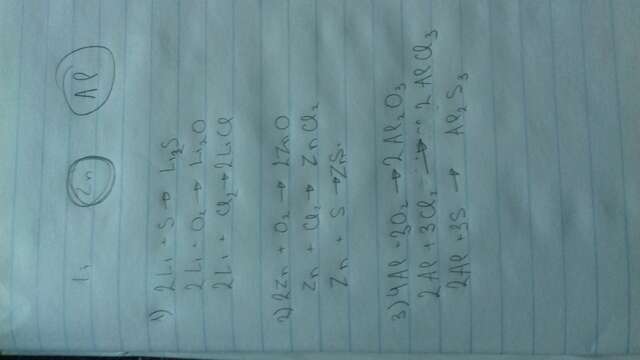 Li Zn Al
1) 2Li + S → Li₂S
2Li + O₂ → Li₂O
2Li + Cl₂ → 2LiCl
2) 2Zn + O₂ → 2ZnO
Zn + Cl₂ → ZnCl₂
Zn + S → ZnS
3) 4Al + 3O₂ → 2Al₂O₃
2Al + 3Cl₂ → 2AlCl₃
2Al + 3S → Al₂S₃